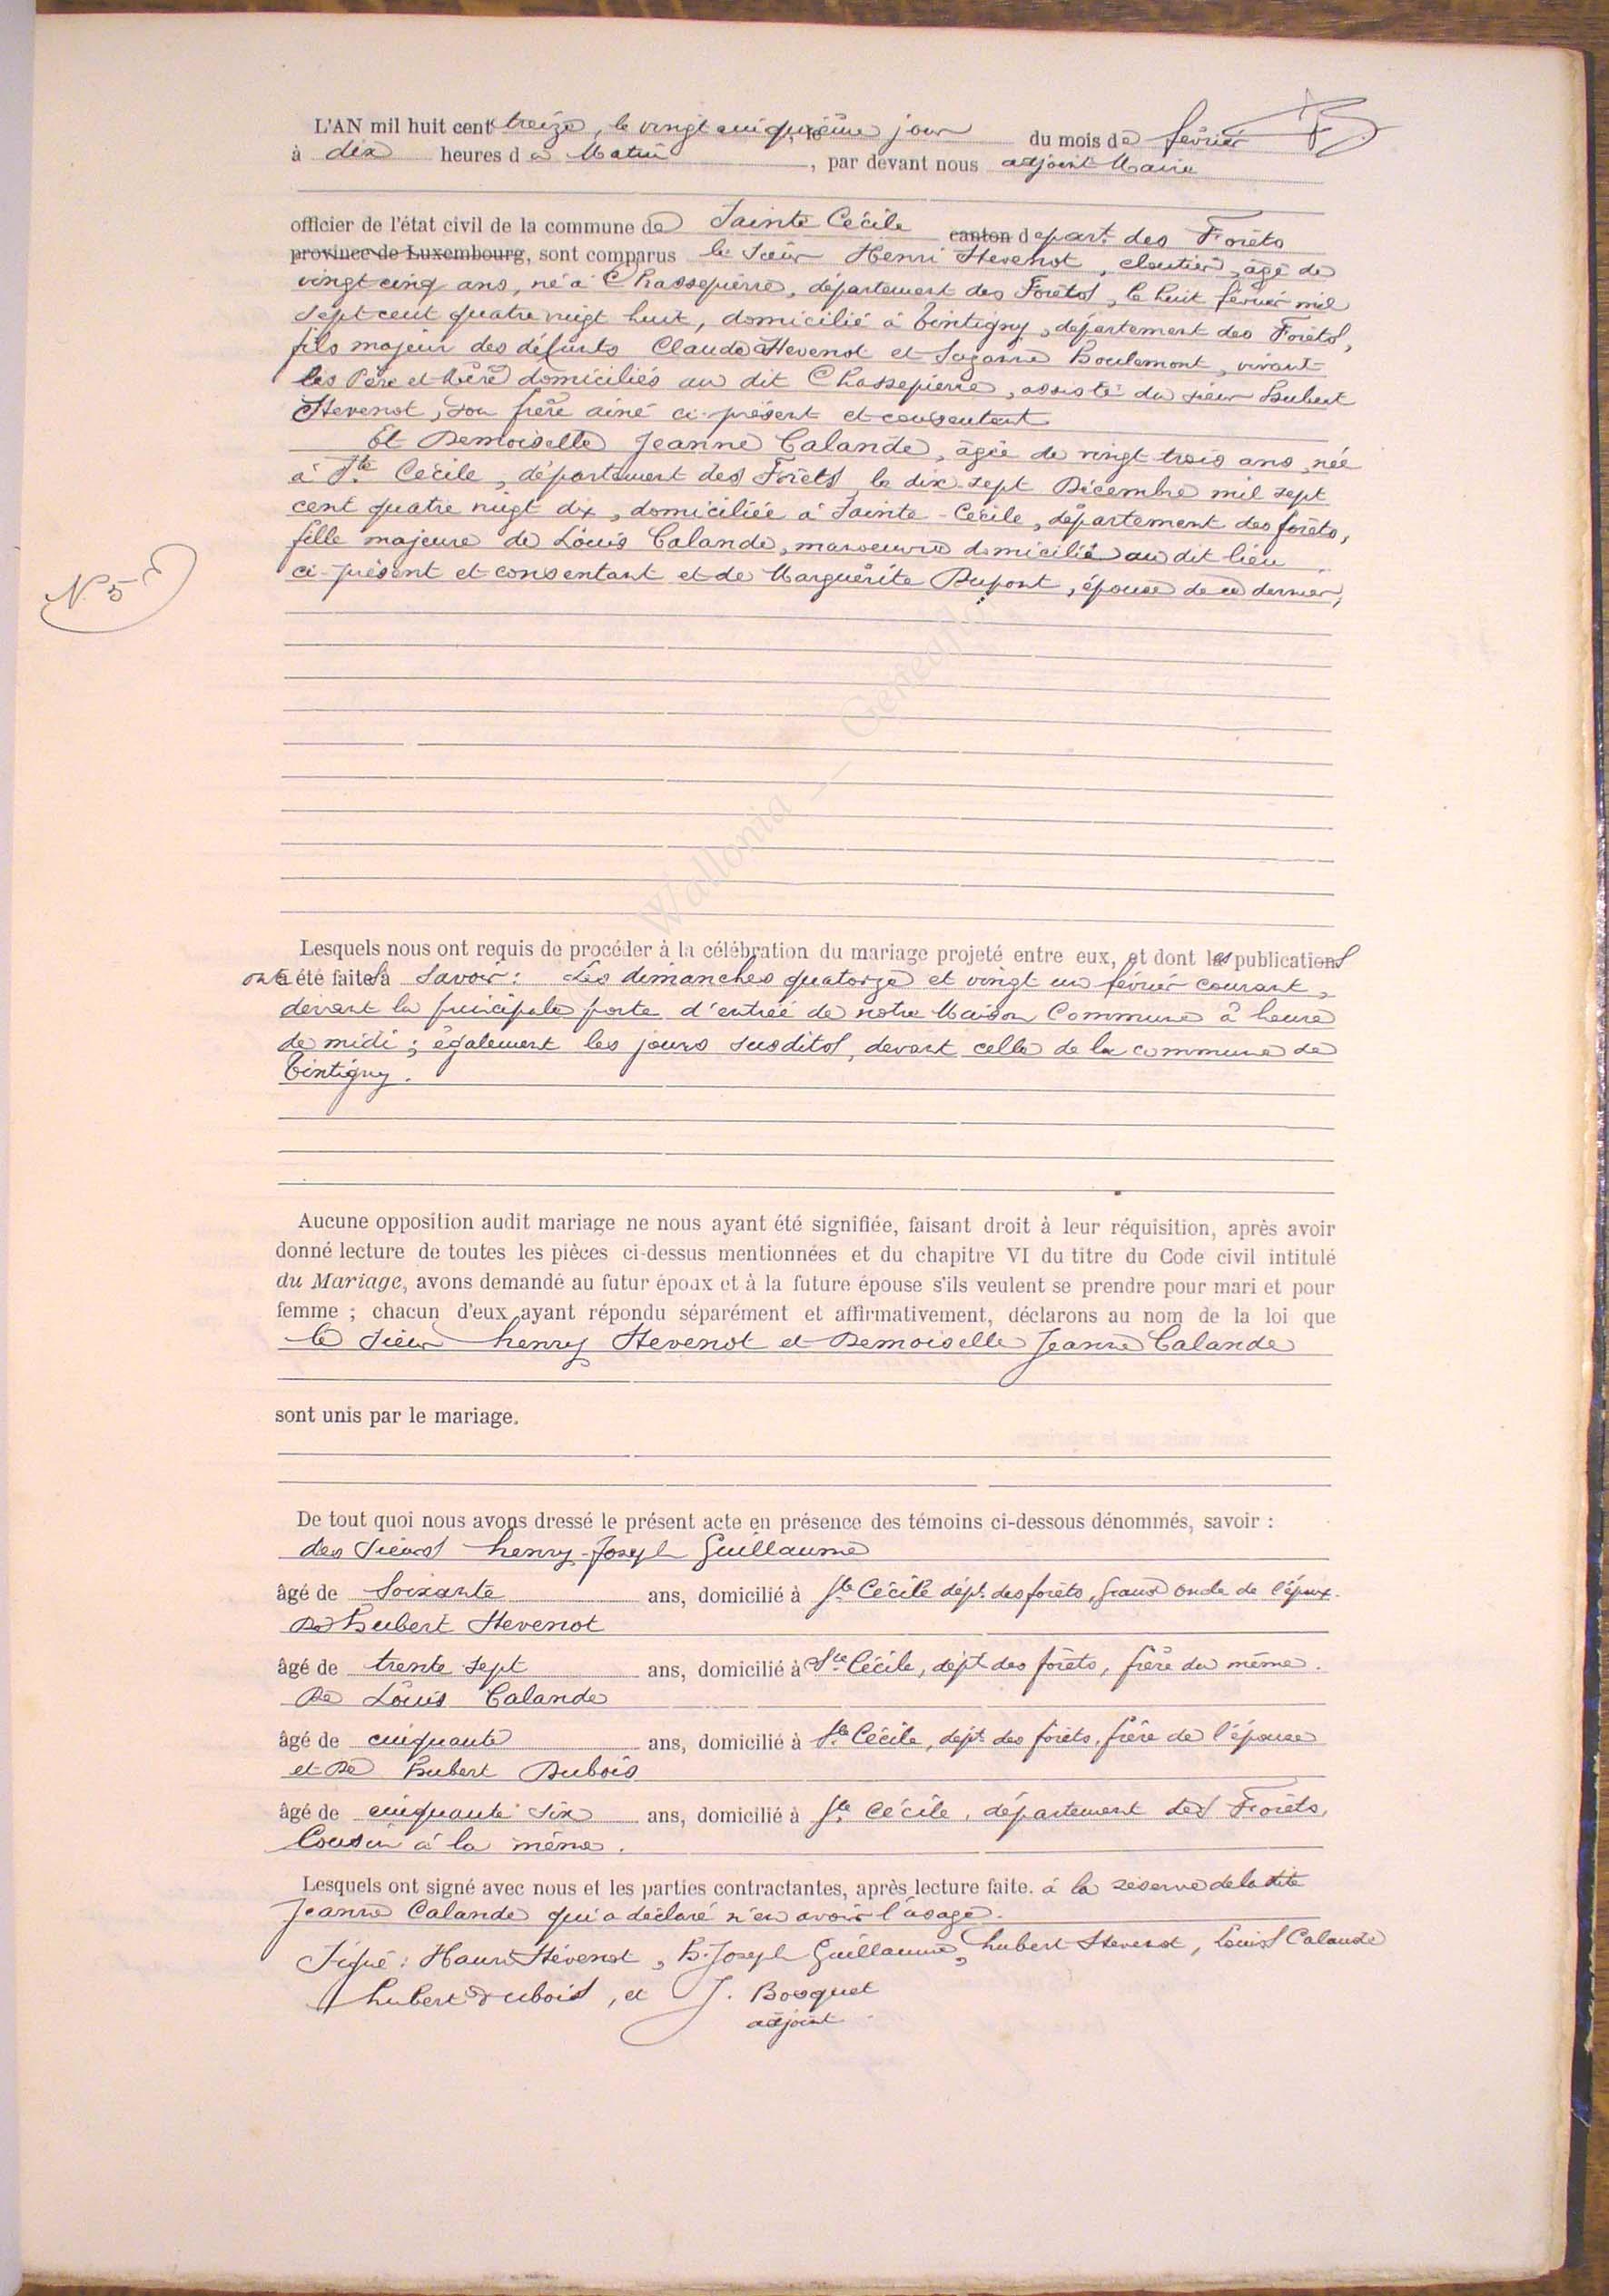 L'AN mil huit cent treize, le vingt cinquième jour du mois de février
à dix heures du Matin, par devant nous adjoint Maire
officier de l'état civil de la commune de Sainte Cécile canton depart. des Forêts
province de Luxembourg, sont comparus le Sieur Henri Stevenot, cloutier, âgé de
vingt cinq ans, né à Chassepierre, département des Forêts, le huit février mil
sept cent quatre vingt huit, domicilié à Tintigny, département des Forêts,
fils majeur des défunts Claude Stevenot et Suzanne Boulemont, vivant
les Père et Mère domiciliés au dit Chassepierre, assisté du sieur Hubert
Stevenot, son frère ainé ci-présent et consentant
Et Demoiselle Jeanne Calande, âgée de vingt trois ans, née
à Ste Cécile, département des Forêts, le dix-sept Décembre mil sept
cent quatre vingt dix, domiciliée à Sainte-Cécile, département des forêts,
fille majeure de Louis Calande, manoeuvre domicilié au dit lieu
ci-présent et consentant et de Marguerite Dupont, épouse de ce dernier,
N. 5
Wallonia – Geneal
Lesquels nous ont requis de procéder à la célébration du mariage projeté entre eux, et dont les publications
ont été faites à Savoir : Les dimanches quatorze et vingt un février courant,
devant la principale porte d'entrée de notre Maison Commune à heure
de midi ; également les jours susdits, devant celle de la commune de
Tintigny.
Aucune opposition audit mariage ne nous ayant été signifiée, faisant droit à leur réquisition, après avoir
donné lecture de toutes les pièces ci-dessus mentionnées et du chapitre VI du titre du Code civil intitulé
du Mariage, avons demandé au futur époux et à la future épouse s'ils veulent se prendre pour mari et pour
femme ; chacun d'eux ayant répondu séparément et affirmativement, déclarons au nom de la loi que
le Sieur henry Stevenot et Demoiselle Jeanne Calande
sont unis par le mariage.
De tout quoi nous avons dressé le présent acte en présence des témoins ci-dessous dénommés, savoir :
des Sieurs henry-Joseph Guillaume
âgé de Soixante ans, domicilié à Ste Cécile dépt. des forêts, grand oncle de l'époux.
De Hubert Stevenot
âgé de trente sept ans, domicilié à Ste Cécile, dépt des forêts, frère du même.
De Louis Calande
âgé de cinquante ans, domicilié à Ste Cécile, dépt des forêts, frère de l'épouse
et De Hubert Dubois
âgé de cinquante six ans, domicilié à Ste Cécile, département des Forêts,
Cousin à la même.
Lesquels ont signé avec nous et les parties contractantes, après lecture faite. à la réserve de la dite
Jeanne Calande qui a déclaré n'en avoir l'usage.
Signé : Hanri Stévenot, h. Joseph Guillaume, hubert Stevenot, Louis Calande
hubert dubois, et J. Bosquet
adjoint